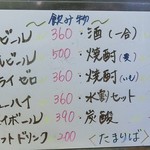 ～飲み物～
ビール 360・酒(一合)
ビール 500・焼酎(麦)
ライゼロ 360・焼酎(いも)
ーハイ 360・水割セット
イボール 390・炭酸
ットドリンク 200 <たまりば>